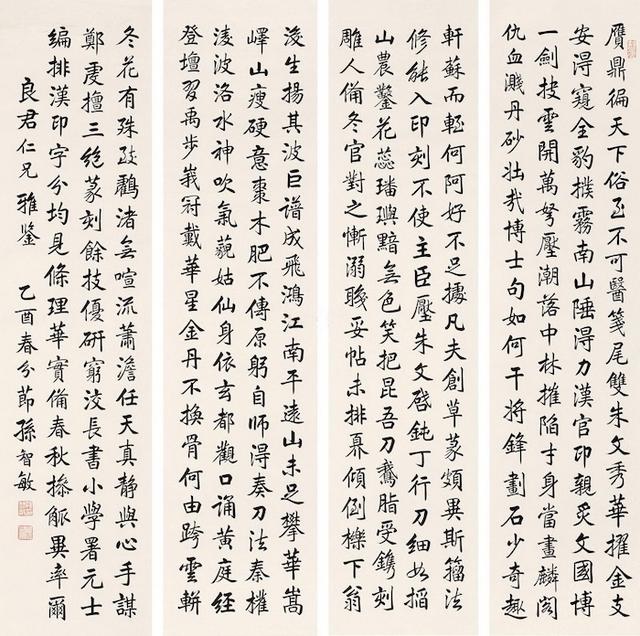 贋鼎徧天下俗至不可醫箋尾雙朱文秀華擢金支
安得窺全豹樸霧南山陲得力漢官印親炙文國博
一劍披雲開萬弩壓潮落中林摧陷才身當畫麟閣
仇血濺丹砂壯哉博士句如何干將鋒劃石少奇趣
軒蘇而輊何阿好不足據凡夫創草篆頗異斯籀法
修能入印刻不使主臣壓朱文啓鈍丁行刀細如掐
山農鑿花蕊璠璵黯無色笑把昆吾刀鵞脂受鐫刻
雕人備冬官對之慚溺職妥帖未排奡傾倒櫟下翁
浚生揚其波巨譜成飛鴻江南平遠山未足攀華嵩
嶧山瘦硬意棗木肥不傳原躬自師得奏刀法秦權
淩波洛水神吹氣藐姑仙身依玄都觀口誦黃庭經
登壇習禹步峩冠戴華星金丹不換骨何由跨雲輧
冬花有殊致鸝渚無喧流蕭澹任天真靜與心手謀
鄭虔擅三絕篆刻餘技優研窮洨長書小學署元士
編排漢印字分均見條理華實備春秋摻觚異率爾
良君仁兄雅鑒 乙酉春分節孫智敏